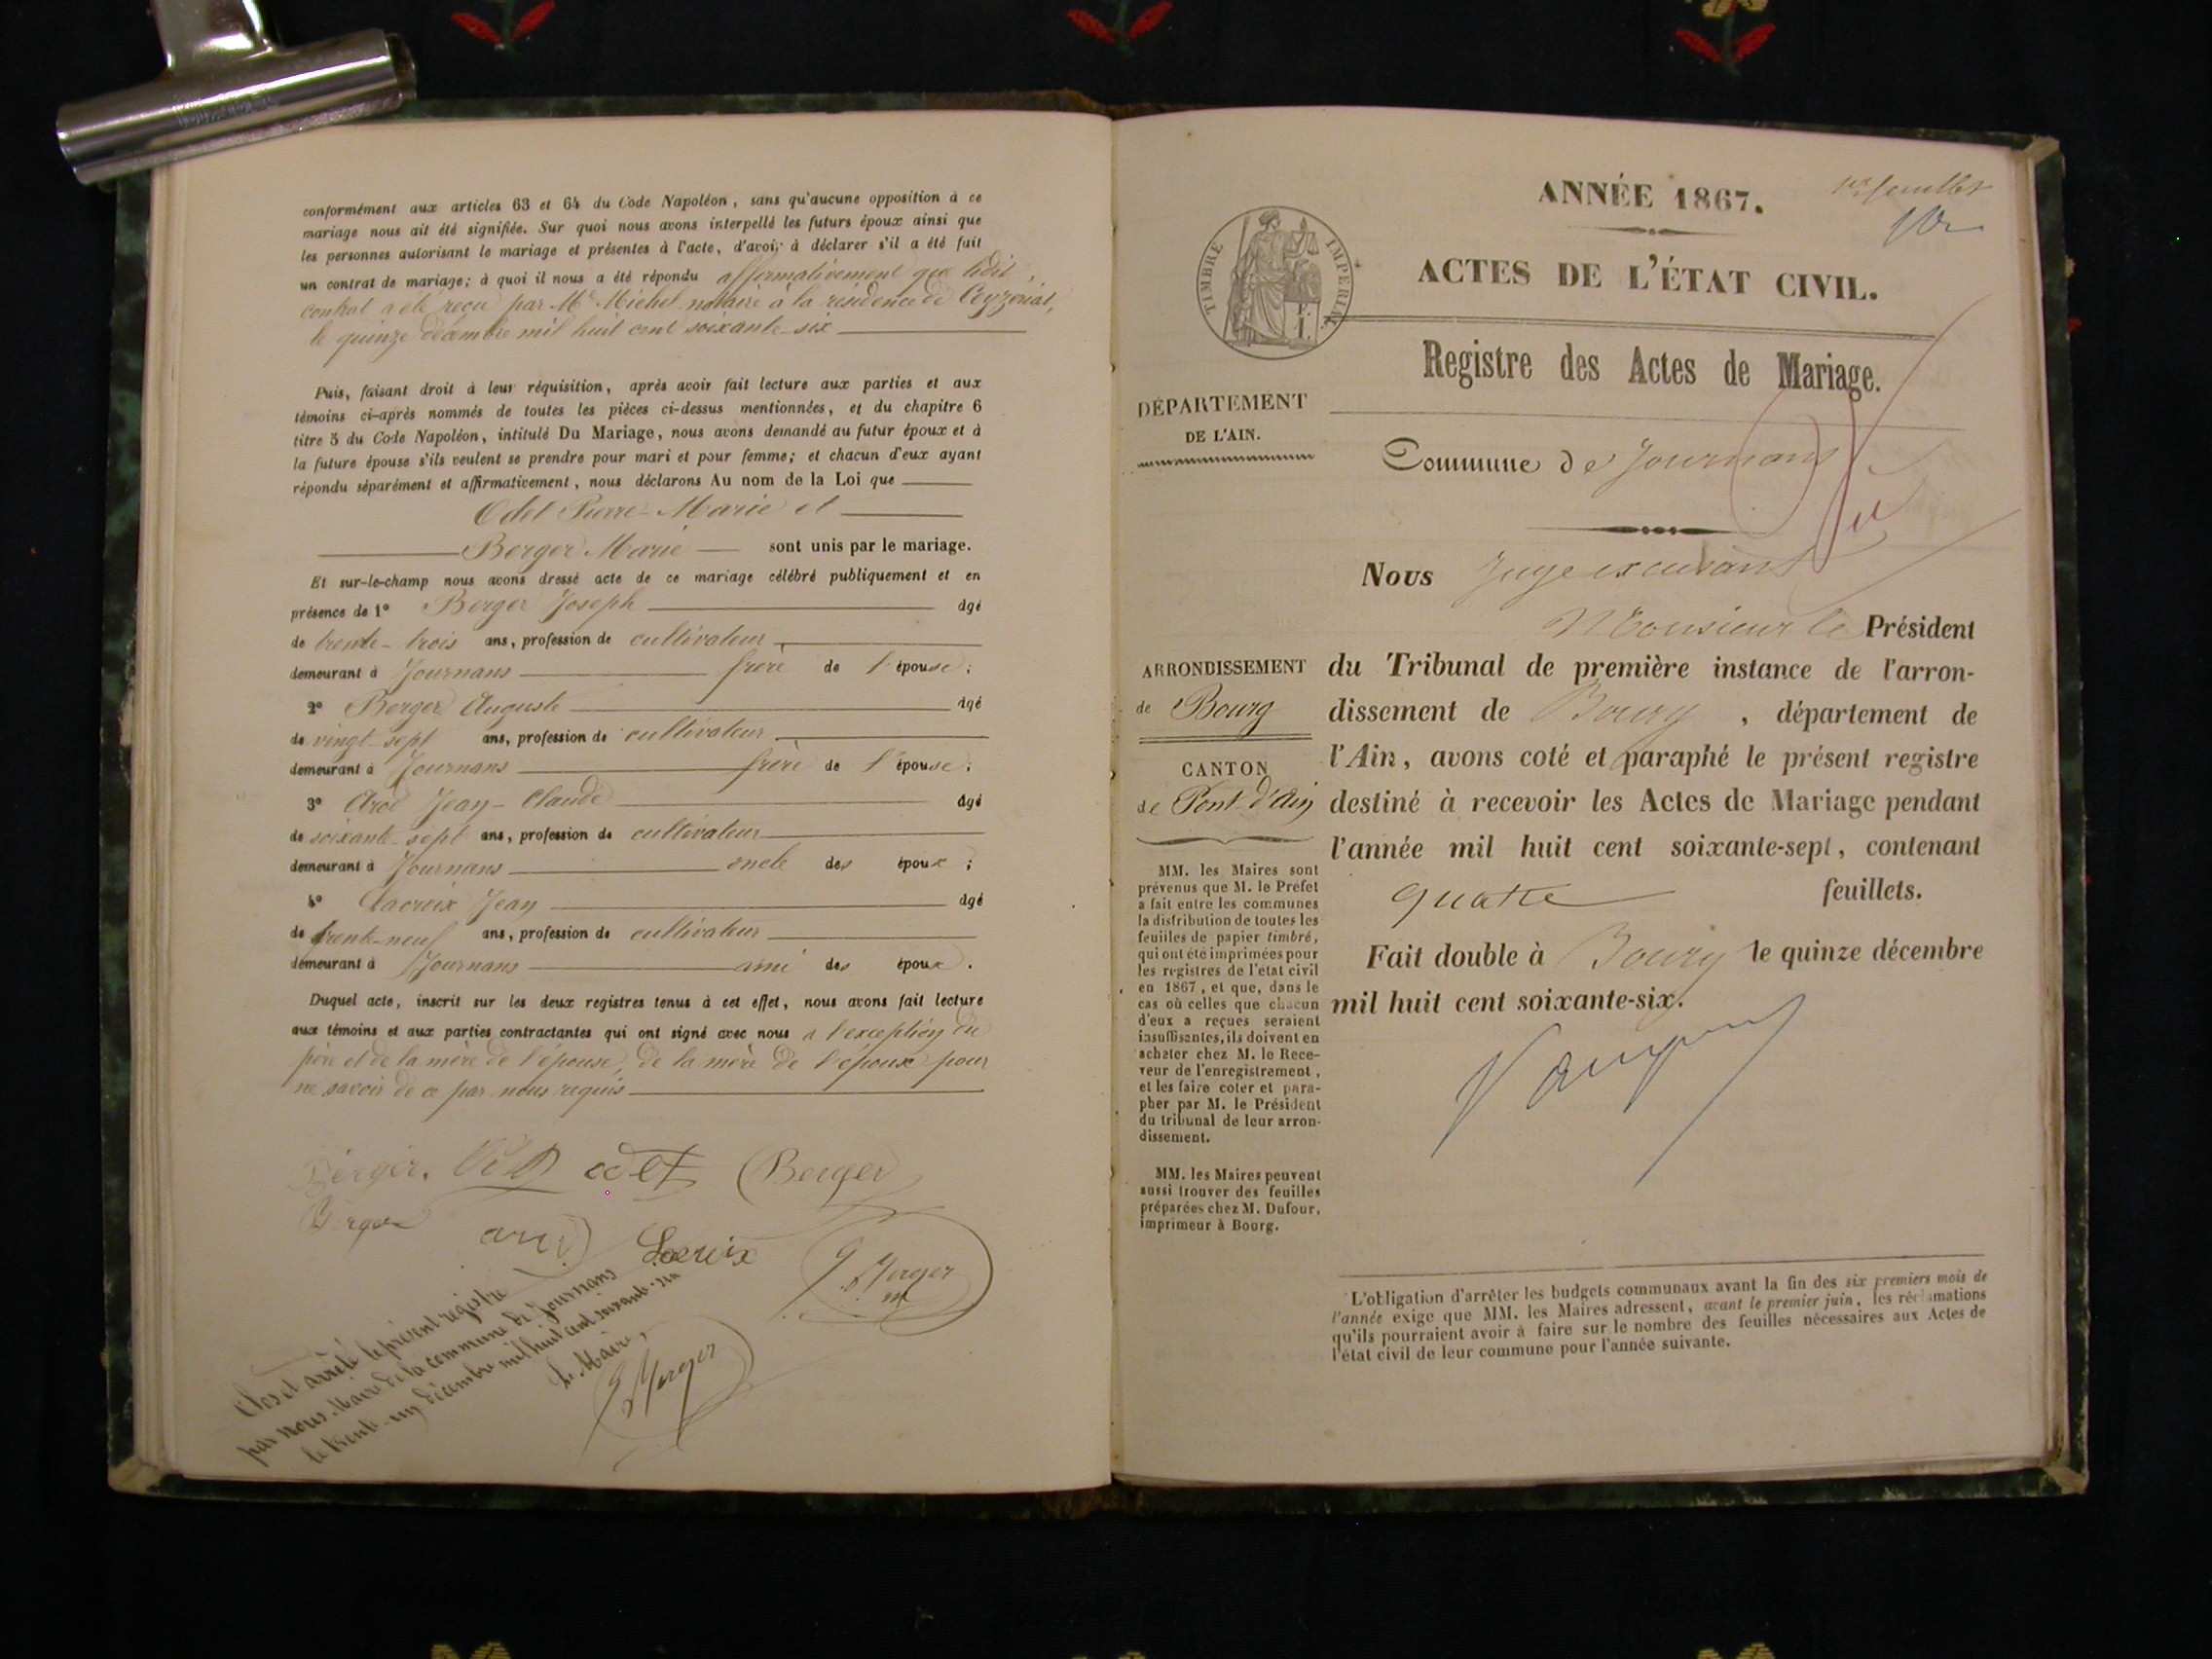 conformément aux articles 63 et 64 du Code Napoléon, sans qu'aucune opposition à ce
mariage nous ait été signifiée. Sur quoi nous avons interpellé les futurs époux ainsi que
les personnes autorisant le mariage et présentes à l'acte, d'avoir à déclarer s'il a été fait
un contrat de mariage; à quoi il nous a été répondu affirmativement que ledit
contrat a été reçu par Me Michel notaire à la résidence de Ceyzériat,
le quinze décembre mil huit cent soixante-six
Puis, faisant droit à leur réquisition, après avoir fait lecture aux parties et aux
témoins ci-après nommés de toutes les pièces ci-dessus mentionnées, et du chapitre 6
titre 5 du Code Napoléon, intitulé Du Mariage, nous avons demandé au futur époux et à
la future épouse s'ils veulent se prendre pour mari et pour femme; et chacun d'eux ayant
répondu séparément et affirmativement, nous déclarons Au nom de la Loi que
Odet Pierre-Marie et
Berger Marie sont unis par le mariage.
Et sur-le-champ nous avons dressé acte de ce mariage célébré publiquement et en
présence de 1° Berger Joseph âgé
de trente-trois ans, profession de cultivateur
demeurant à Journans frère de l'épouse;
2° Berger Auguste âgé
de vingt-sept ans, profession de cultivateur
demeurant à Journans frère de l'épouse;
3° Jean-Claude âgé
de soixante-sept ans, profession de cultivateur
demeurant à Journans oncle des époux;
4° Lacroix Jean âgé
de trente-neuf ans, profession de cultivateur
demeurant à Journans ami des époux.
Duquel acte, inscrit sur les deux registres tenus à cet effet, nous avons fait lecture
aux témoins et aux parties contractantes qui ont signé avec nous à l'exception du
père et de la mère de l'épouse, de la mère de l'époux pour
ne savoir de ce par nous requis
Berger. odet Berger
Berger Lacroix
Clos et arrêté le présent registre
par nous Maire de la commune de Journans
le trente-un décembre mil huit cent soixante-six
Le Maire,
ANNÉE 1867.
1er feuillet
TIMBRE IMPERIAL
ACTES DE L'ÉTAT CIVIL.
Registre des Actes de Mariage.
DÉPARTEMENT
DE L'AIN.
Commune de Journans
Nous Juge
Monsieur le Président
ARRONDISSEMENT
de Bourg
CANTON
de Pont d'Ain
du Tribunal de première instance de l'arron-
dissement de Bourg, département de
l'Ain, avons coté et paraphé le présent registre
destiné à recevoir les Actes de Mariage pendant
l'année mil huit cent soixante-sept, contenant
quatre feuillets.
Fait double à Bourg le quinze décembre
mil huit cent soixante-six.
MM. les Maires sont
prévenus que M. le Préfet
a fait entre les communes
la distribution de toutes les
feuilles de papier timbré,
qui ont été imprimées pour
les registres de l'état civil
en 1867, et que, dans le
cas où celles que chacun
d'eux a reçues seraient
insuffisantes, ils doivent en
acheter chez M. le Rece-
veur de l'enregistrement,
et les faire coter et para-
pher par M. le Président
du tribunal de leur arron-
dissement.
MM. les Maires peuvent
aussi trouver des feuilles
préparées chez M. Dufour,
imprimeur à Bourg.
L'obligation d'arrêter les budgets communaux avant la fin des six premiers mois de
l'année exige que MM. les Maires adressent, avant le premier juin, les réclamations
qu'ils pourraient avoir à faire sur le nombre des feuilles nécessaires aux Actes de
l'état civil de leur commune pour l'année suivante.